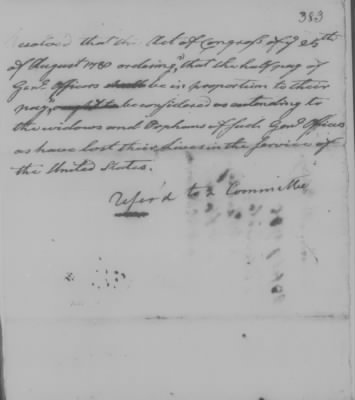 383
Resolved that the Act of Congress of ye 25th
of August 1780 ordering, that the half pay of
Genl Officers shall be in proportion to their
pay, ought to be considered as extending to
the widows and Orphans of such Genl Officers
as have lost their Lives in the service of
the United States.
Refer'd to a Committee